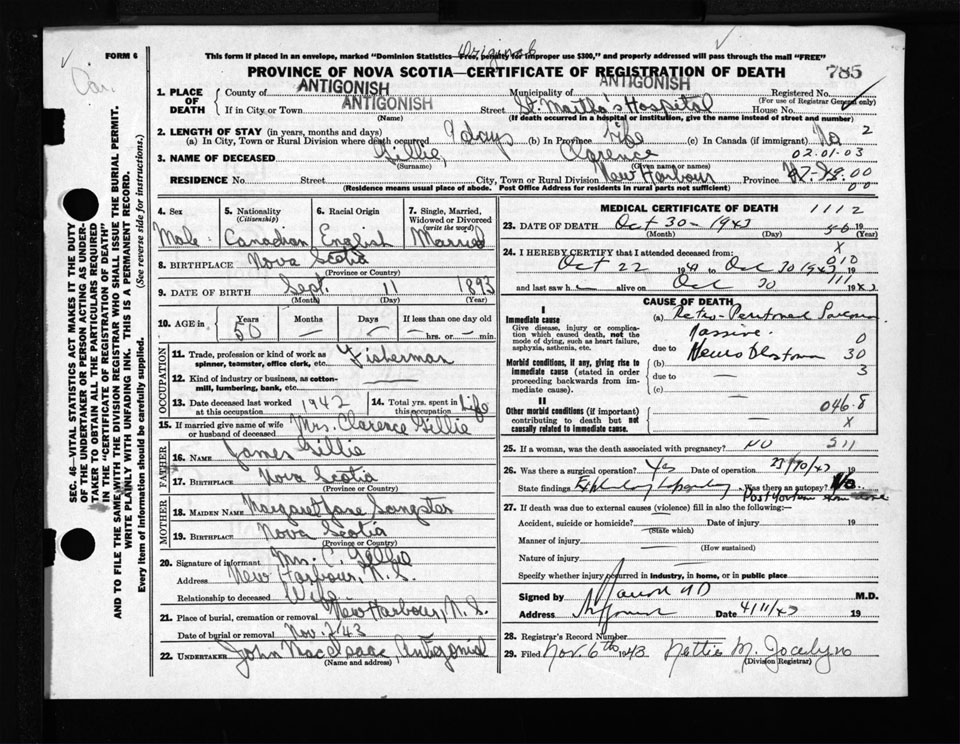 FORM 6
This form if placed in an envelope, marked "Dominion Statistics—Free, penalty for improper use $300," and properly addressed will pass through the mail "FREE"
Original
PROVINCE OF NOVA SCOTIA—CERTIFICATE OF REGISTRATION OF DEATH
785
1. PLACE OF DEATH
County of ANTIGONISH
Municipality of ANTIGONISH
Registered No.
(For use of Registrar General only)
If in City, or Town ANTIGONISH Street St. Martha's Hospital House No.
(Name) (If death occurred in a hospital or institution, give the name instead of street and number)
2. LENGTH OF STAY (in years, months and days)
(a) In City, Town or Rural Division where death occurred 9 days (b) In Province Life (c) In Canada (if immigrant) No 2
3. NAME OF DECEASED Gillie, Clarence 02.01.03
(Surname) (Given name or names)
RESIDENCE No. Street City, Town or Rural Division New Harbour Province
(Residence means usual place of abode. Post Office Address for residents in rural parts not sufficient)
4. Sex Male
5. Nationality (Citizenship) Canadian
6. Racial Origin English
7. Single, Married, Widowed or Divorced (write the word) Married
8. BIRTHPLACE Nova Scotia
(Province or Country)
9. DATE OF BIRTH Sept. 11 1893
(Month) (Day) (Year)
10. AGE in Years 50 Months — Days — If less than one day old — hrs. or — min.
OCCUPATION
11. Trade, profession or kind of work as spinner, teamster, office clerk, etc. Fisherman
12. Kind of industry or business, as cotton-mill, lumbering, bank, etc. —
13. Date deceased last worked at this occupation 1942
14. Total yrs. spent in this occupation Life
15. If married give name of wife or husband of deceased Mrs. Clarence Gillie
FATHER
16. NAME James Gillie
17. BIRTHPLACE Nova Scotia
(Province or Country)
MOTHER
18. MAIDEN NAME Margaret Jane Sangster
19. BIRTHPLACE Nova Scotia
(Province or Country)
20. Signature of informant Mrs. C. Gillie
Address New Harbour, N.S.
Relationship to deceased Wife
21. Place of burial, cremation or removal New Harbour, N.S.
Date of burial or removal Nov. 2/43
22. UNDERTAKER John MacIsaac, Antigonish
(Name and address)
MEDICAL CERTIFICATE OF DEATH 1112
23. DATE OF DEATH Oct 30 - 1943 19
(Month) (Day) (Year)
24. I HEREBY CERTIFY that I attended deceased from:
Oct 22 19 to Oct 30 1943 19
and last saw h alive on Oct 30 19
CAUSE OF DEATH
I
Immediate cause
Give disease, injury or complication which caused death, not the mode of dying, such as heart failure, asphyxia, asthenia, etc.
(a) Retro-Peritoneal
Massive.
due to
(b) 30
Morbid conditions, if any, giving rise to immediate cause (stated in order proceeding backwards from immediate cause).
due to — 3
(c)
II
Other morbid conditions (if important) contributing to death but not causally related to immediate cause.
046.8
X
25. If a woman, was the death associated with pregnancy? NO 511
26. Was there a surgical operation? Yes Date of operation 23/10/43 19
State findings Was there an autopsy? No
Post Mortem
27. If death was due to external causes (violence) fill in also the following:—
Accident, suicide or homicide? Date of injury 19
(State which)
Manner of injury
(How sustained)
Nature of injury
Specify whether injury occurred in industry, in home, or in public place
Signed by MD M.D.
Address Date 4/11/43 19
28. Registrar's Record Number
29. Filed Nov. 6th 1943 Nettie M. Jocelyn
(Division Registrar)
SEC. 46—VITAL STATISTICS ACT MAKES IT THE DUTY OF THE UNDERTAKER OR PERSON ACTING AS UNDERTAKER TO OBTAIN ALL THE PARTICULARS REQUIRED IN THE "CERTIFICATE OF REGISTRATION OF DEATH" AND TO FILE THE SAME WITH THE DIVISION REGISTRAR WHO SHALL ISSUE THE BURIAL PERMIT.
WRITE PLAINLY WITH UNFADING INK. THIS IS A PERMANENT RECORD.
Every item of information should be carefully supplied. (See reverse side for instructions.)